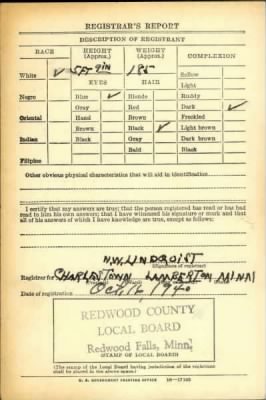 REGISTRAR'S REPORT
DESCRIPTION OF REGISTRANT
RACE HEIGHT (Approx.) WEIGHT (Approx.) COMPLEXION
White ✓ 5FT 9IN 185 Sallow
EYES HAIR Light
Negro Blue ✓ Blonde Ruddy
Gray Red Dark ✓
Oriental Hazel Brown Freckled
Brown Black ✓ Light brown
Indian Black Gray Dark brown
Bald Black
Filipino
Other obvious physical characteristics that will aid in identification
I certify that my answers are true; that the person registered has read or has had
read to him his own answers; that I have witnessed his signature or mark and that
all of his answers of which I have knowledge are true, except as follows:
N.W. LINDQUIST
(Signature of registrar)
Registrar for CHARLESTOWN LAMBERTON MINN
Date of registration Oct 16, 1940
REDWOOD COUNTY
LOCAL BOARD
Redwood Falls, Minn.
(STAMP OF LOCAL BOARD)
(The stamp of the Local Board having jurisdiction of the registrant
shall be placed in the above space.)
U. S. GOVERNMENT PRINTING OFFICE 16—17105